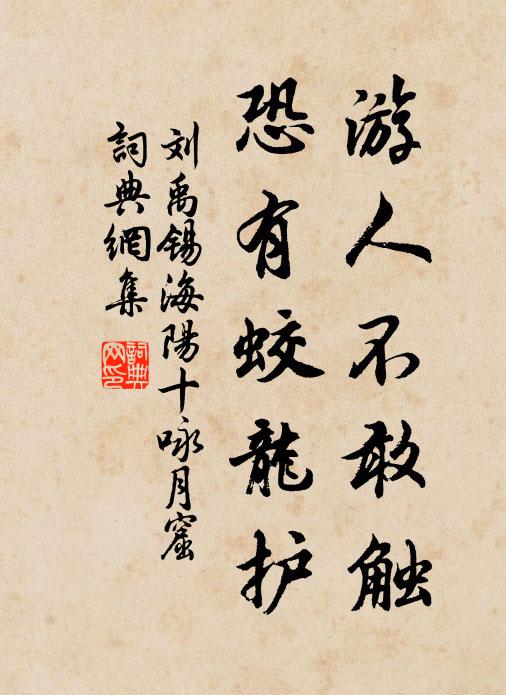 游人不敢触
恐有蛟龍护
刘禹锡海陽十咏月窟
詞典網集
詞典
网印